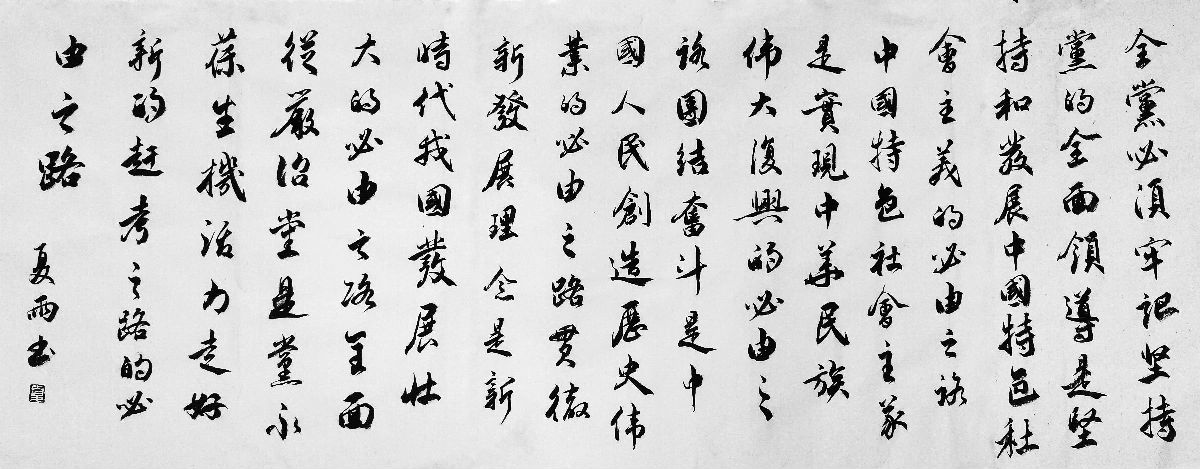 全黨必須牢記堅持
黨的全面領導是堅
持和發展中國特色社
會主義的必由之路
中國特色社會主義
是實現中華民族
伟大復興的必由之
路團結奮斗是中
國人民創造歷史伟
業的必由之路貫徹
新發展理念是新
時代我國發展壮
大的必由之路全面
從嚴治党是黨永
葆生機活力走好
新的赶考之路的必
由之路
夏雨书